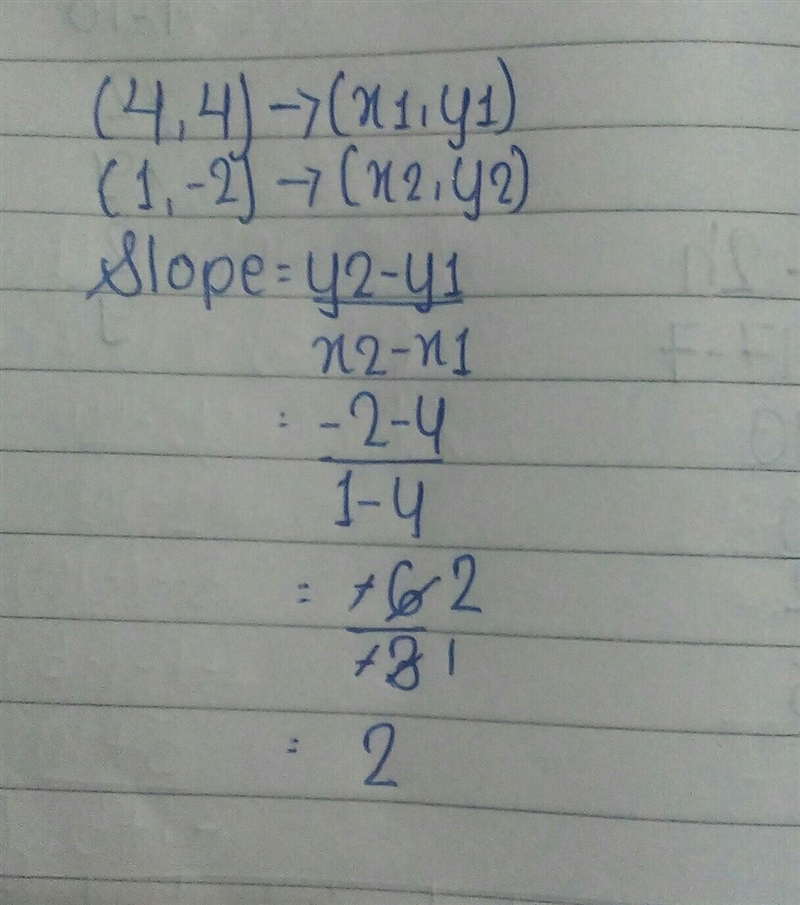 (4,4) → (x1,y1)
(1,-2) → (x2,y2)
Slope = y2-y1
x2-x1
= -2-4
1-4
= -6 2
-3 1
= 2